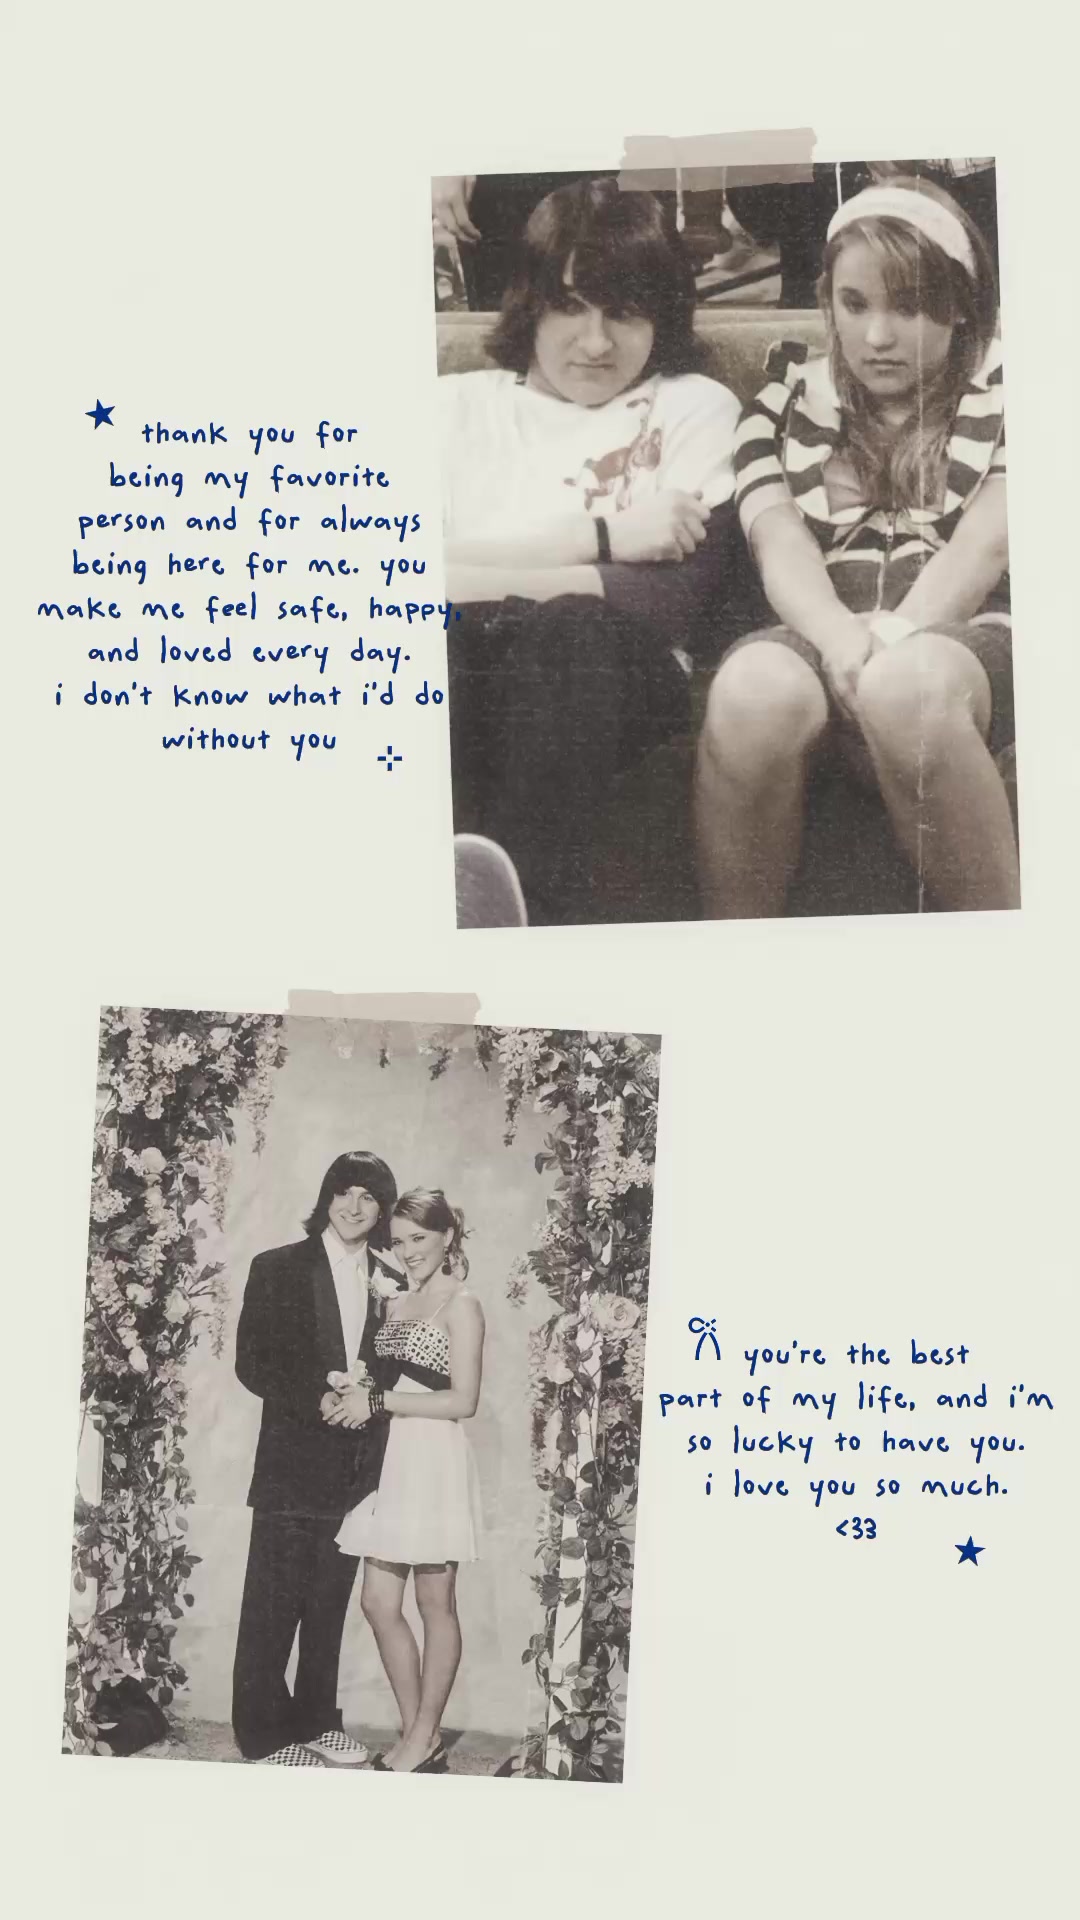 thank you for
being my favorite
person and for always
being here for me. you
make me feel safe, happy,
and loved every day.
i don't know what i'd do
without you
you're the best
part of my life, and i'm
so lucky to have you.
i love you so much.
<33